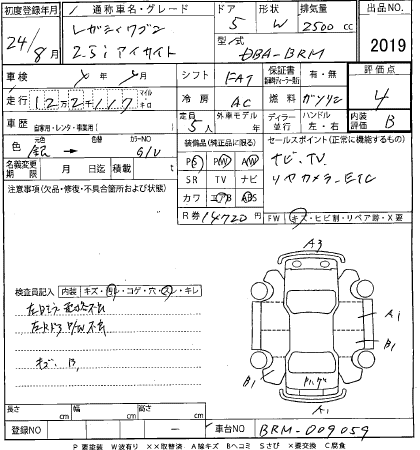 初度登録年月 / 通称車名・グレード ドア 形状 排気量 出品NO.
レガシィワゴン 5 W 2500 cc
24/8月 2.5i アイサイト 型式 DBA-BRM 2019
車検 年 月 シフト FAT 保証書 有・無 評価点
走行 12万2千117 マイル キロ 冷房 AC 燃料 ガソリン 4
車歴 自家用・レンタ・事業用( ) 定員 5人 外車モデル 年 ディーラー 並行 ハンドル 左・右 内装 B
色 元色 銀 色替 カラーNO G1U 装備品(純正品に限る) セールスポイント(正常に機能するもの)
名義変更期限 月 日迄 積載 t PS PW AW ナビ、TV
注意事項(欠品・修復・不具合箇所および状態) SR TV ナビ リヤカメラ ETC
カワ エアB ABS
R券 14720円 FW キズ・ヒビ割・リペア跡・X要
A3
検査員記入 内装 キズ・汚レ・コゲ・穴・スレ・キレ
左ドアミラー
左Rドア P/W
キズ・B,
A1
B1
B1
P1.
A1
長さ cm 幅 cm 高さ cm
登録NO – 車台NO BRM-009059
P 要塗装 W波有り XX取替済 A線キズ Bヘコミ Sさび ×要交換 C腐食